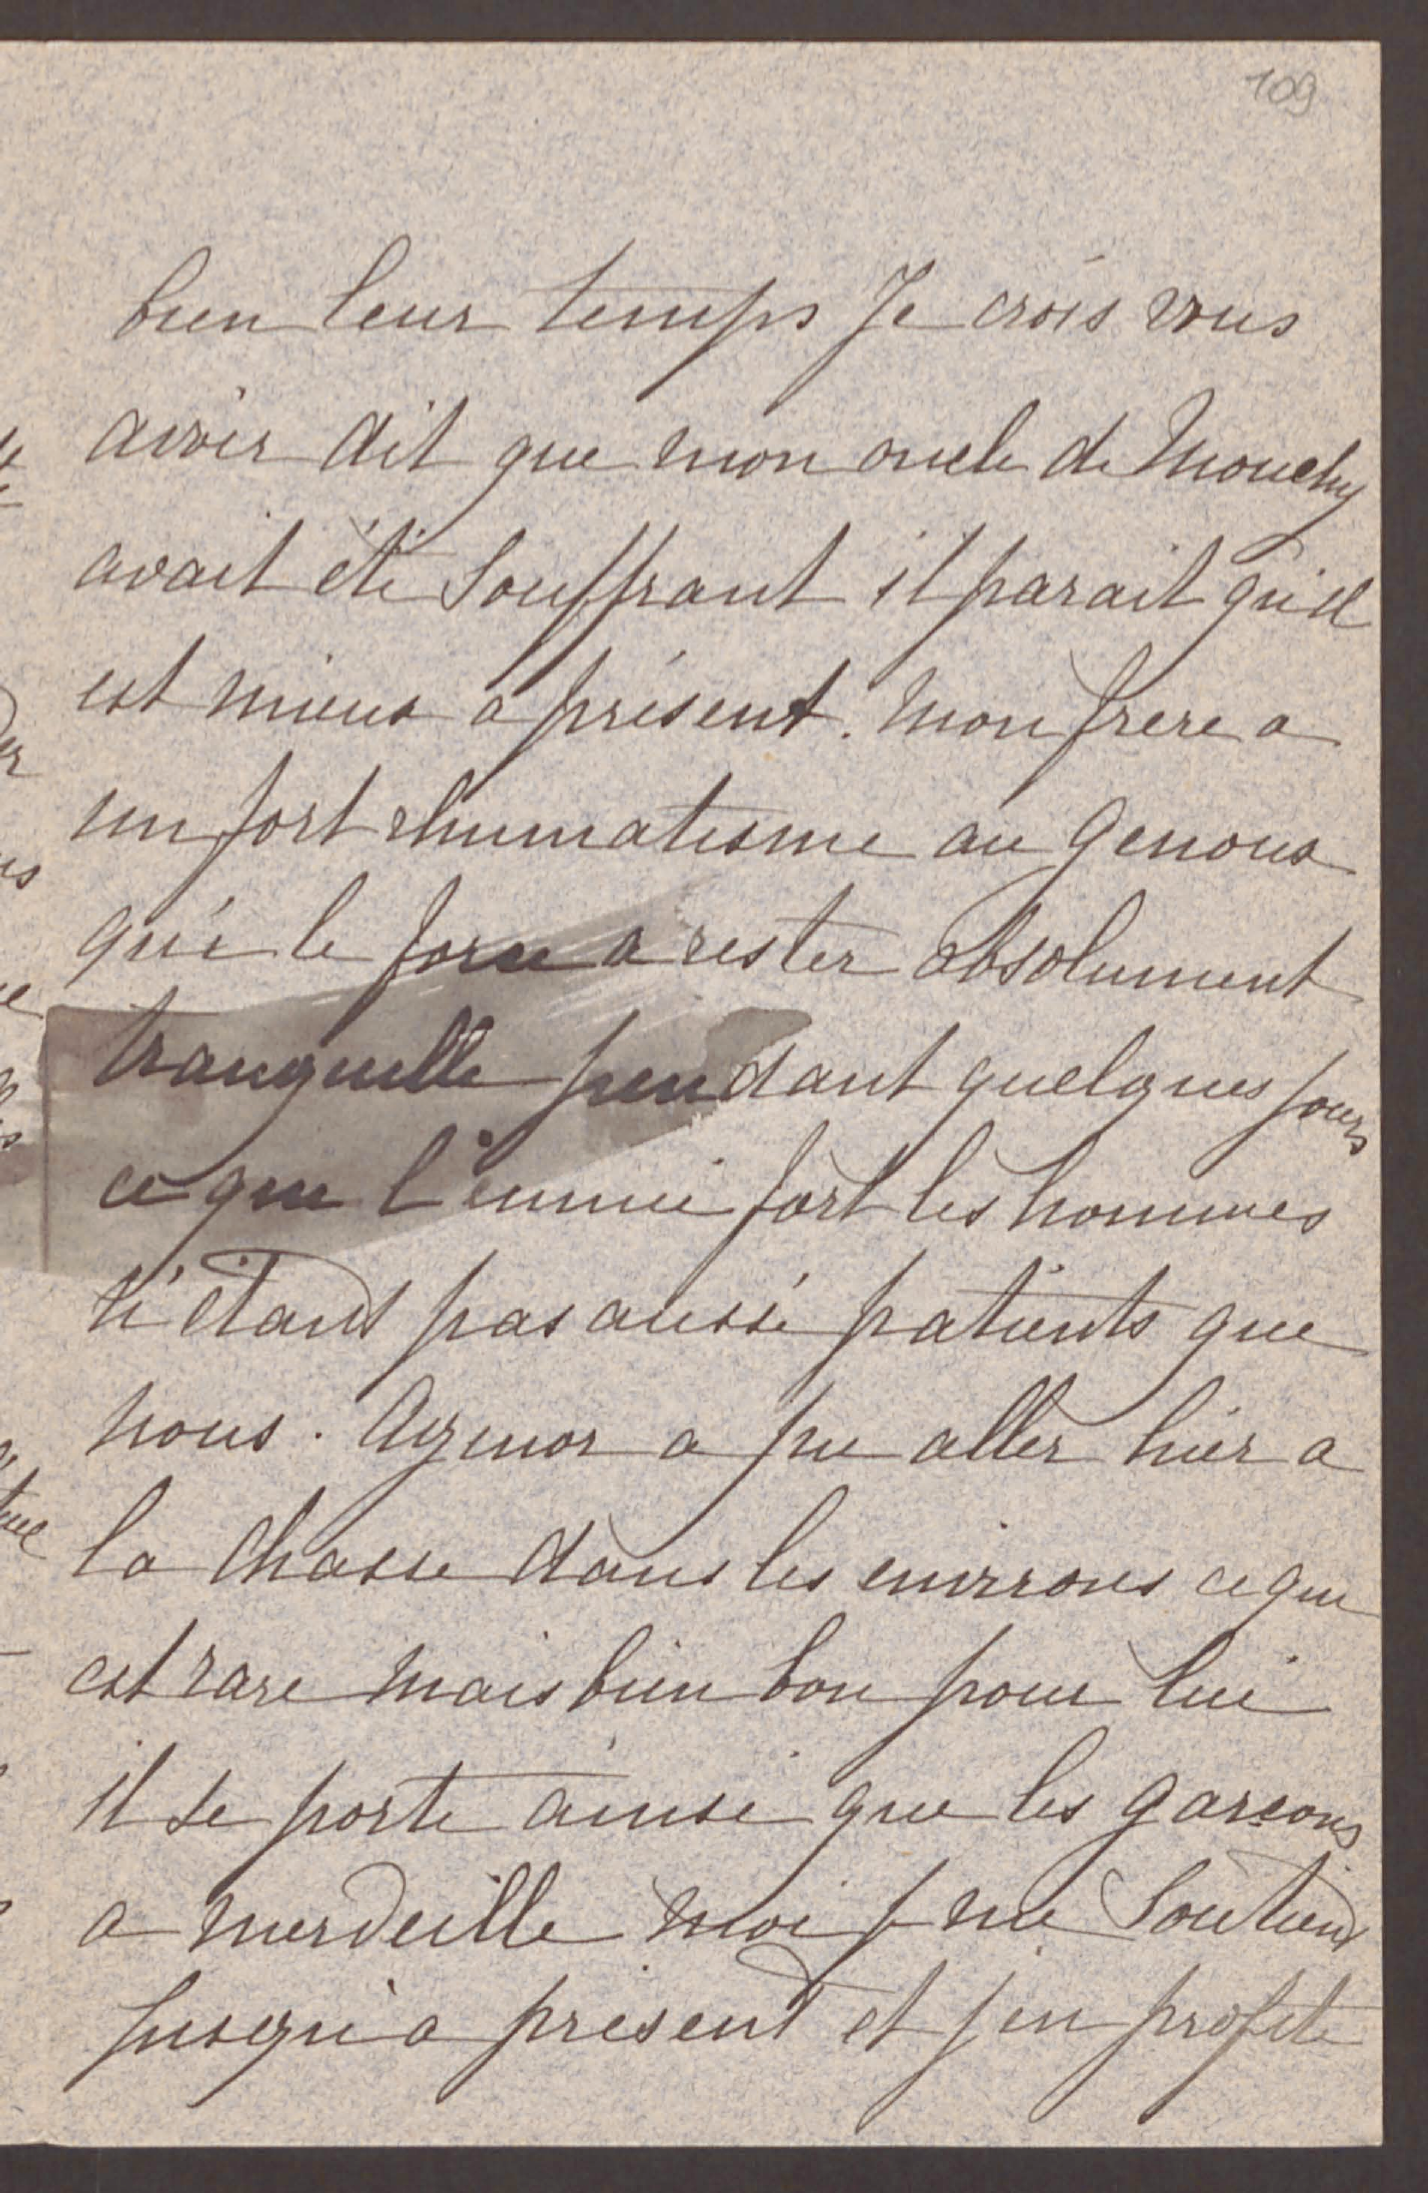 109
bien leur temps Je crois vous
avoir dit que mon oncle de Mouchy
avait été souffrant il parait qu'il
est mieux a présent. Mon frere a
un fort rhumatisme au genoux
qui le force a rester absolument
tranquille pendant quelques jours
ce qui l'ennuie fort les hommes
n'étant pas aussi patients que
nous. Agenor a pu aller hier a
la chasse dans les environs ce qui
est rare mais bien bon pour lui
il se porte ainsi que les garcons
a merveille moi je me soutiens
jusqu'a présent et j'en profite